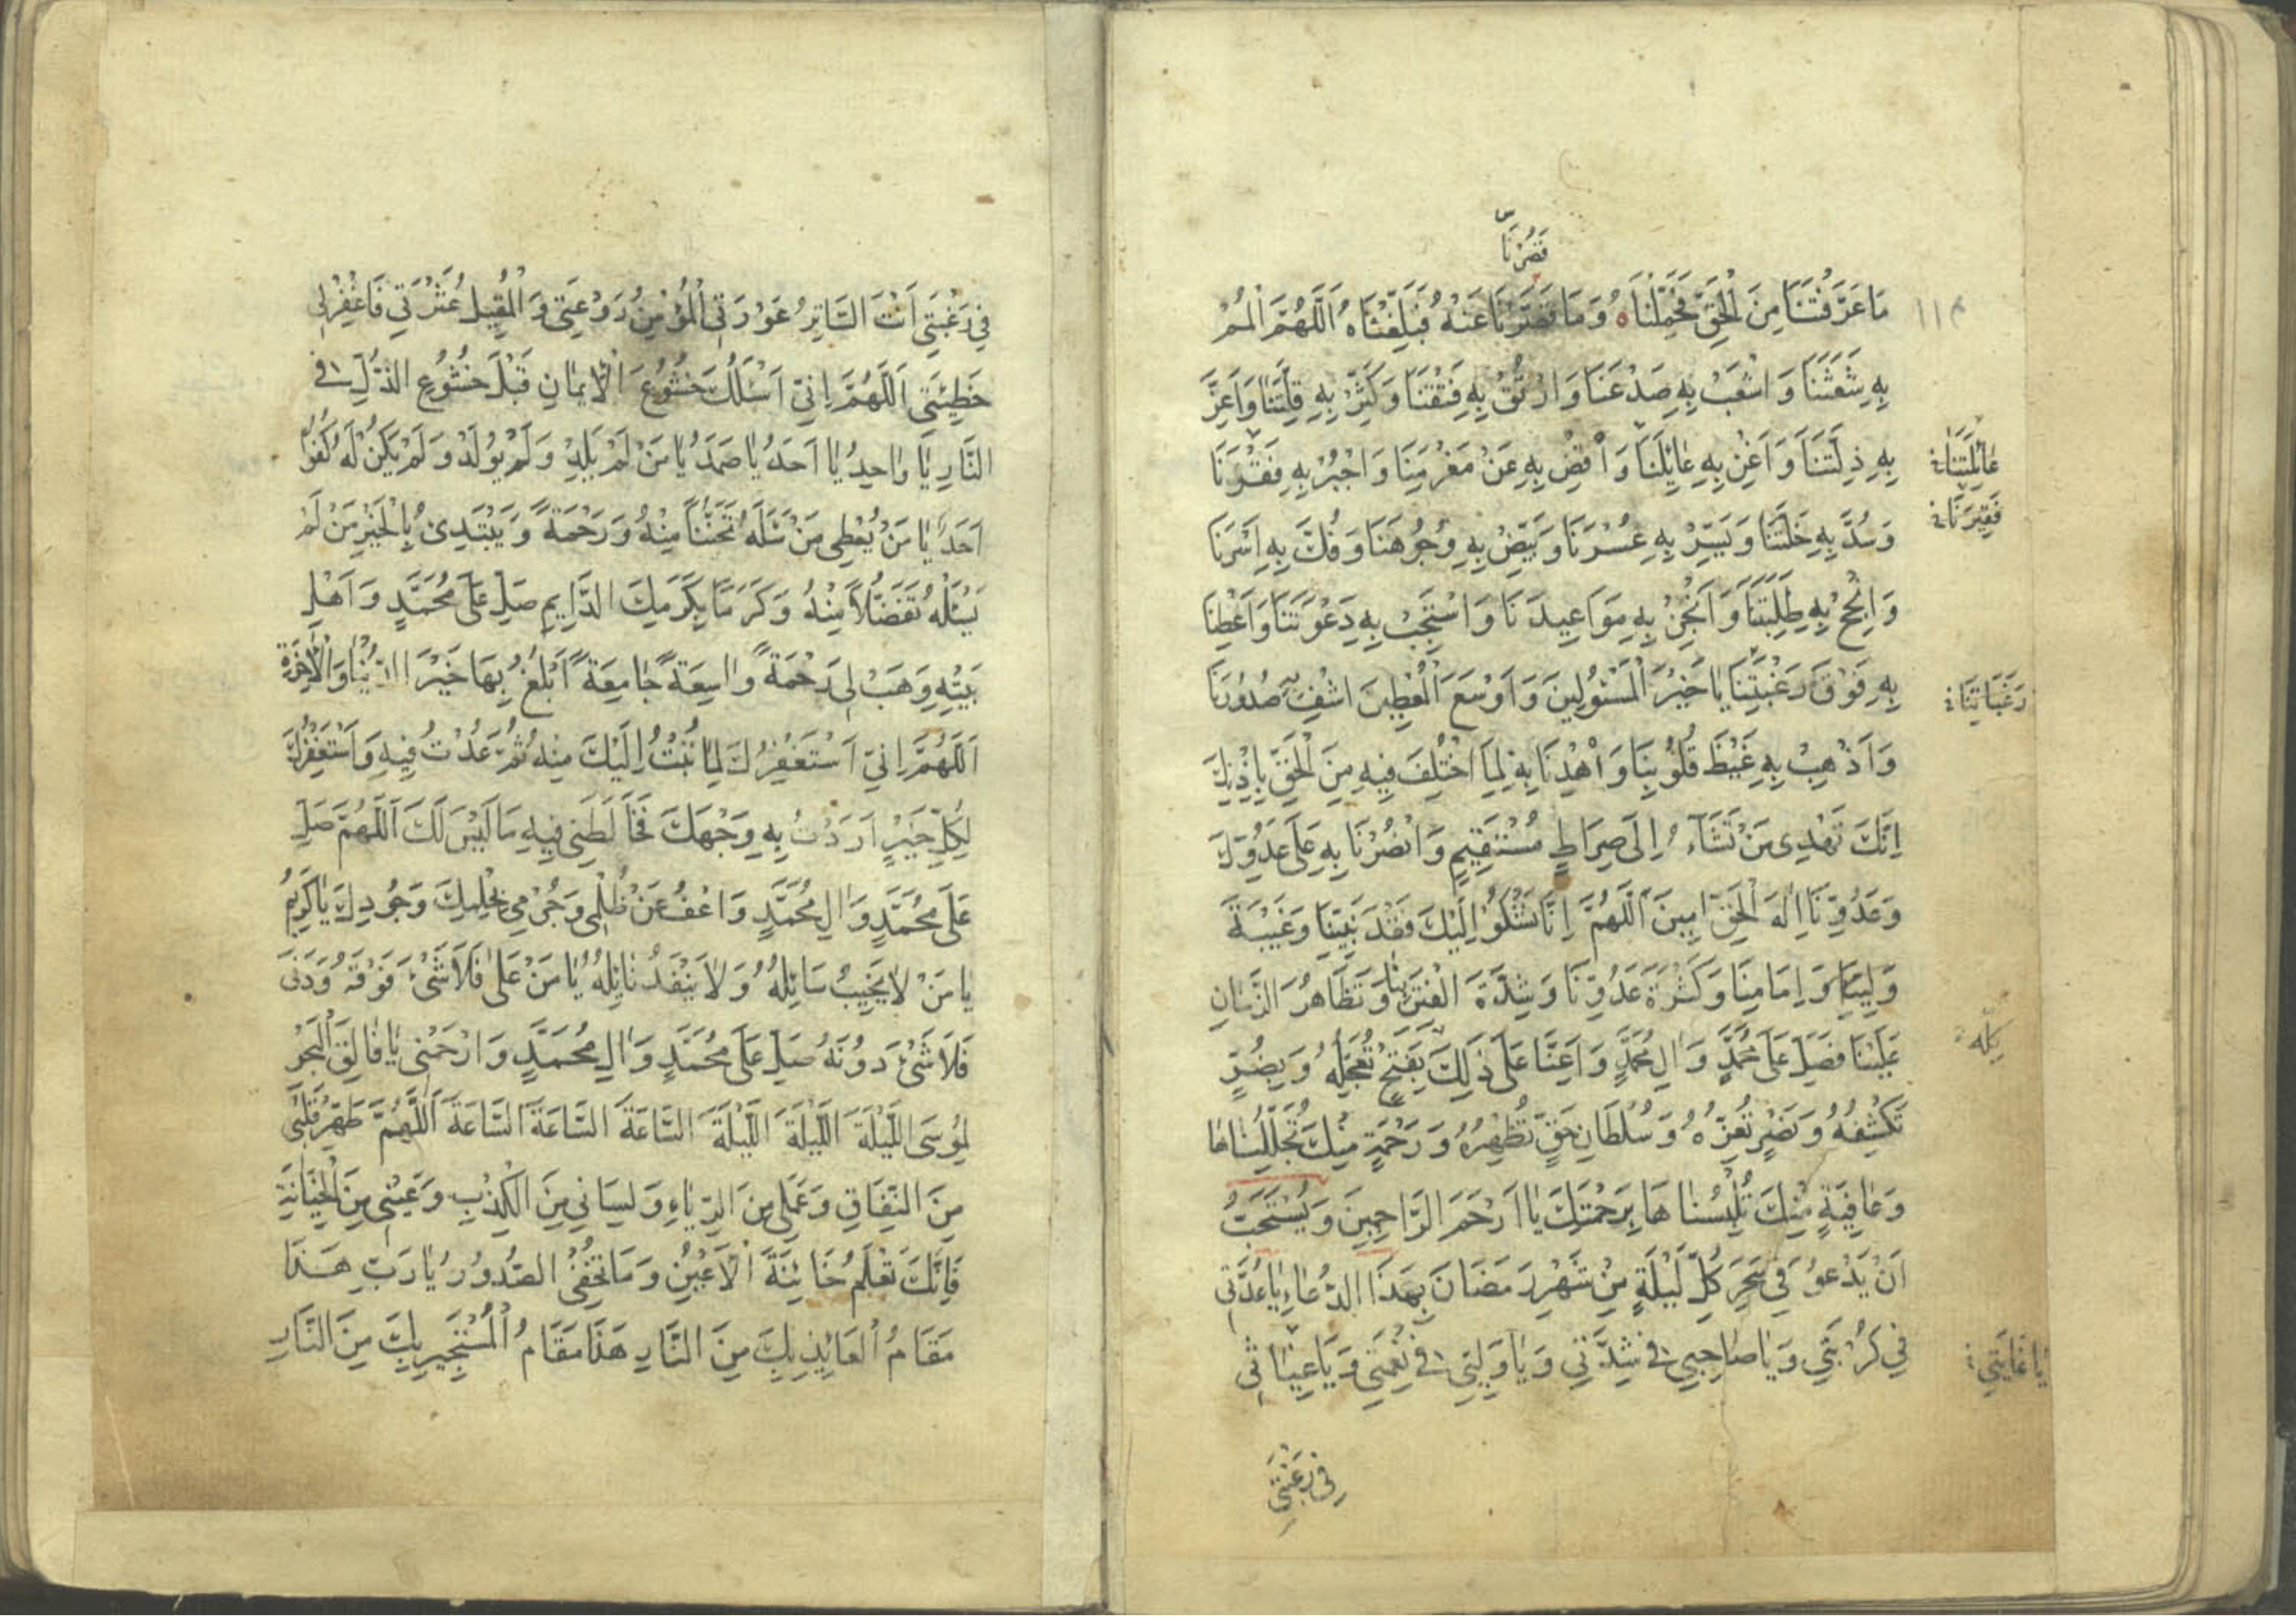 قَصُرْنَا
مَا عَرَّفْتَنَا مِنَ الْحَقِّ فَحَمِّلْنَاهُ وَمَا قَصُرْنَا عَنْهُ فَبَلِّغْنَاهُ اَللَّهُمَّ الْمُمْ
بِهِ شَعَثَنَا وَاشْعَبْ بِهِ صَدْعَنَا وَارْتُقْ بِهِ فَتْقَنَا وَكَثِّرْ بِهِ قِلَّتَنَا وَاَعِزَّ
بِهِ ذِلَّتَنَا وَاَغْنِ بِهِ عَائِلَنَا وَاقْضِ بِهِ عَنْ مَغْرَمِنَا وَاجْبُرْ بِهِ فَقْرَنَا
عَائِلَتَنَا
فَقِيرَنَا
وَسُدَّ بِهِ خَلَّتَنَا وَيَسِّرْ بِهِ عُسْرَنَا وَبَيِّضْ بِهِ وُجُوهَنَا وَفُكَّ بِهِ اَسْرَنَا
وَانْجِحْ بِهِ طَلِبَتَنَا وَاَنْجِزْ بِهِ مَوَاعِيدَنَا وَاسْتَجِبْ بِهِ دَعْوَتَنَا وَاَعْطِنَا
بِهِ فَوْقَ رَغْبَتِنَا يَا خَيْرَ الْمَسْئُولِينَ وَاَوْسَعَ الْمُعْطِينَ اشْفِ بِهِ صُدُورَنَا
رَغَبَاتِنَا
وَاَذْهِبْ بِهِ غَيْظَ قُلُوبِنَا وَاهْدِنَا بِهِ لِمَا اخْتُلِفَ فِيهِ مِنَ الْحَقِّ بِاِذْنِكَ
اِنَّكَ تَهْدِي مَنْ تَشَآءُ اِلَى صِرَاطٍ مُسْتَقِيمٍ وَانْصُرْنَا بِهِ عَلَى عَدُوِّكَ
وَعَدُوِّنَا اِلَهَ الْحَقِّ امِينَ اَللَّهُمَّ اِنَّا نَشْكُو اِلَيْكَ فَقْدَ نَبِيِّنَا وَغَيْبَةَ
وَلِيِّنَا وَاِمَامِنَا وَكَثْرَةَ عَدُوِّنَا وَشِدَّةَ الْفِتَنِ بِنَا وَتَظَاهُرَ الزَّمَانِ
عَلَيْنَا فَصَلِّ عَلَى مُحَمَّدٍ وَالِ مُحَمَّدٍ وَاَعِنَّا عَلَى ذَلِكَ بِفَتْحٍ تُعَجِّلُهُ وَبِضُرٍّ
كُلِّهِ
تَكْشِفُهُ وَنَصْرٍ تُعِزُّهُ وَسُلْطَانِ حَقٍّ تُظْهِرُهُ وَرَحْمَةٍ مِنْكَ تُجَلِّلُنَاهَا
وَعَافِيَةٍ مِنْكَ تُلْبِسُنَاهَا بِرَحْمَتِكَ يَا اَرْحَمَ الرَّاحِمِينَ وَيُسْتَحَبُّ
اَنْ يَدْعُوَ فِي سَحَرِ كُلِّ لَيْلَةٍ مِنْ شَهْرِ رَمَضَانَ بِهَذَا الدُّعَاءِ يَا عُدَّتِي
فِي كُرْبَتِي وَيَا صَاحِبِي فِي شِدَّتِي وَيَا وَلِيِّي فِي نِعْمَتِي وَيَا غِيَاثِي
يَا غَايَتِي
فِي رَغْبَتِي
فِي رَغْبَتِي اَنْتَ السَّاتِرُ عَوْرَتِي الْمُؤْمِنُ رَوْعَتِي وَالْمُقِيلُ عَثْرَتِي فَاغْفِرْ لِي
خَطِيئَتِي اَللَّهُمَّ اِنِّي اَسْئَلُكَ خُشُوعَ الْاِيمَانِ قَبْلَ خُشُوعِ الذُّلِّ فِي
النَّارِ يَا وَاحِدُ يَا اَحَدُ يَا صَمَدُ يَا مَنْ لَمْ يَلِدْ وَلَمْ يُولَدْ وَلَمْ يَكُنْ لَهُ كُفُوًا
اَحَدٌ يَا مَنْ يُعْطِي مَنْ سَئَلَهُ تَحَنُّنًا مِنْهُ وَرَحْمَةً وَيَبْتَدِئُ بِالْخَيْرِ مَنْ لَمْ
يَسْئَلْهُ تَفَضُّلًا مِنْهُ وَكَرَمًا بِكَرَمِكَ الدَّايِمِ صَلِّ عَلَى مُحَمَّدٍ وَاَهْلِ
بَيْتِهِ وَهَبْ لِي رَحْمَةً وَاسِعَةً جَامِعَةً اَبْلُغُ بِهَا خَيْرَ الدُّنْيَا وَالْاخِرَةِ
اَللَّهُمَّ اِنِّي اَسْتَغْفِرُكَ لِمَا تُبْتُ اِلَيْكَ مِنْهُ ثُمَّ عُدْتُ فِيهِ وَاَسْتَغْفِرُكَ
لِكُلِّ خَيْرٍ اَرَدْتُ بِهِ وَجْهَكَ فَخَالَطَنِي فِيهِ مَا لَيْسَ لَكَ اَللَّهُمَّ صَلِّ
عَلَى مُحَمَّدٍ وَالِ مُحَمَّدٍ وَاعْفُ عَنْ ظُلْمِي وَجُرْمِي بِحِلْمِكَ وَجُودِكَ يَا كَرِيمُ
يَا مَنْ لَا يَخِيبُ سَائِلُهُ وَلَا يَنْفَدُ نَائِلُهُ يَا مَنْ عَلَى فَلَا شَيْءَ فَوْقَهُ وَدَنَى
فَلَا شَيْءَ دُونَهُ صَلِّ عَلَى مُحَمَّدٍ وَالِ مُحَمَّدٍ وَارْحَمْنِي يَا فَالِقَ الْبَحْرِ
لِمُوسَى اللَّيْلَةَ اللَّيْلَةَ اللَّيْلَةَ السَّاعَةَ السَّاعَةَ السَّاعَةَ اَللَّهُمَّ طَهِّرْ قَلْبِي
مِنَ النِّفَاقِ وَعَمَلِي مِنَ الرِّيَاءِ وَلِسَانِي مِنَ الْكَذِبِ وَعَيْنِي مِنَ الْخِيَانَةِ
فَاِنَّكَ تَعْلَمُ خَائِنَةَ الْاَعْيُنِ وَمَا تُخْفِي الصُّدُورُ يَا رَبِّ هَذَا
مَقَامُ الْعَائِذِ بِكَ مِنَ النَّارِ هَذَا مَقَامُ الْمُسْتَجِيرِ بِكَ مِنَ النَّارِ